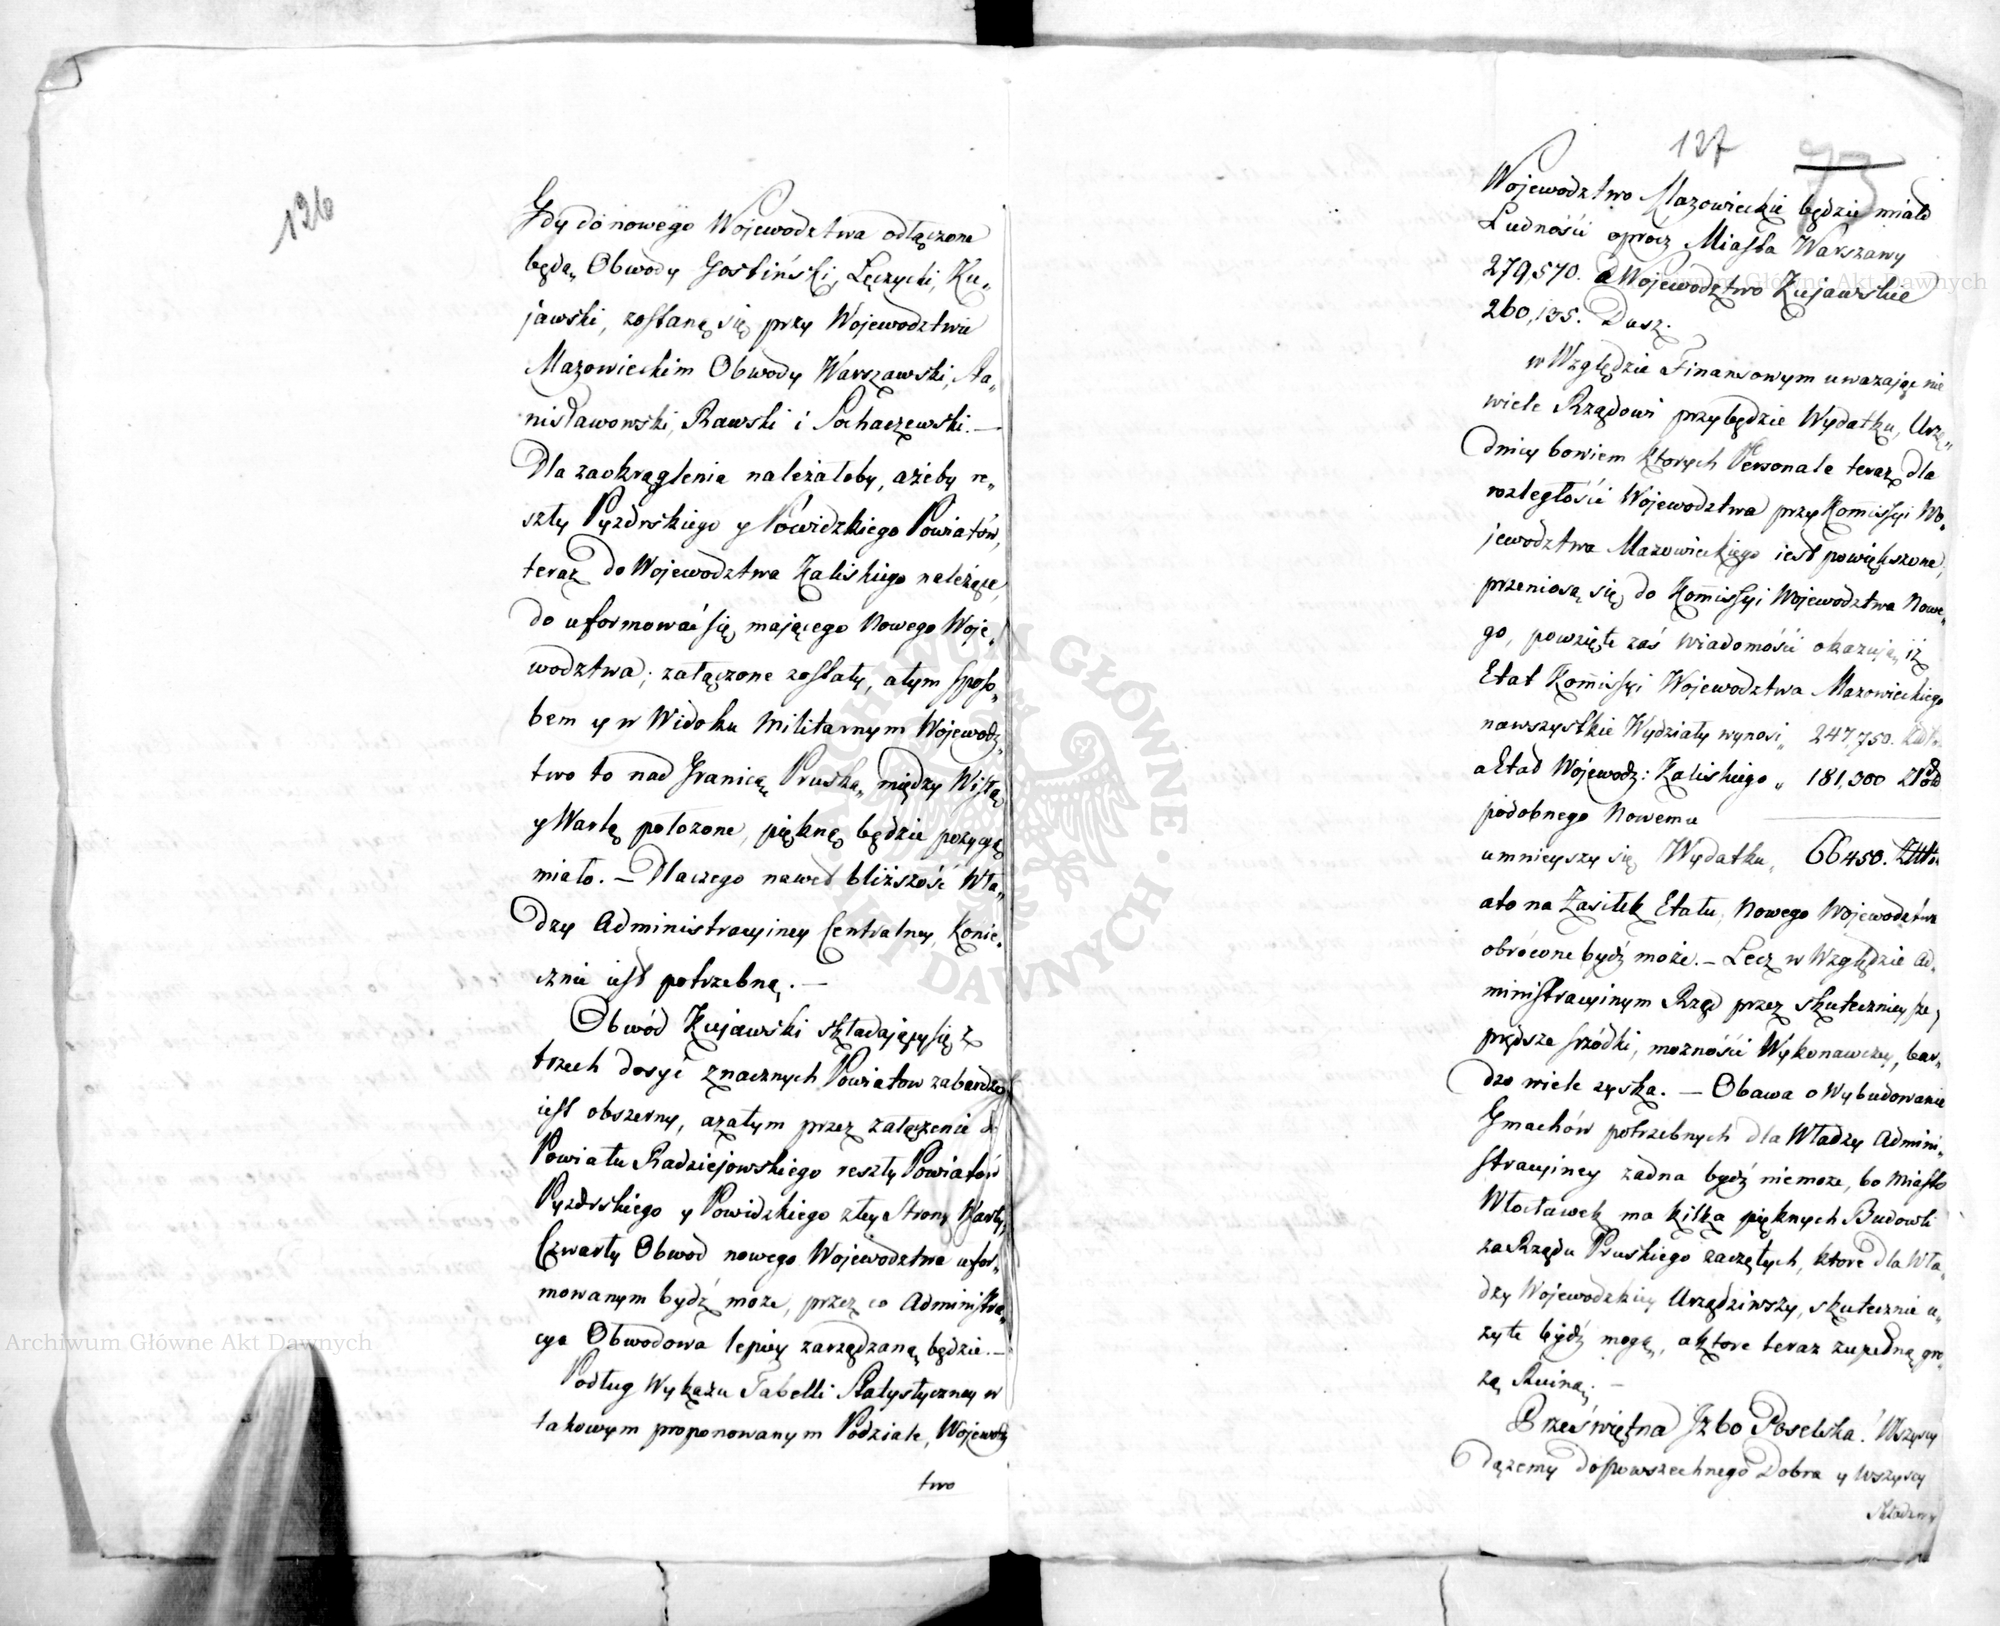 126
Gdy do nowego Wojewodztwa odłączone
będą Obwody Gostiński, Łęczycki, Ku„
jawski, zostaną się przy Wojewodztwie
Mazowieckim Obwody Warszawski, Sta„
nisławowski, Rawski i Sochaczewski. —
Dla zaokrąglenia należałoby, ażeby re„
szty Pyzdrskiego y Powidzkiego Powiatów,
teraz do Wojewodztwa Kaliskiego należące,
do uformować się maiącego Nowego Woje„
wodztwa, załączone zostały, a tym sposo„
bem y w Widoku Militarnym Wojewodz„
two to nad Granicą Pruską, między Wisłą
y Wartą położone, piękną będzie pozycyą
miało. — Dlaczego nawed bliższość Wła„
dzy Administracyiney Centralney, Konie„
cznie iest potrzebną. —
Obwód Kujawski składaiący się z
trzech dosyć znacznych Powiatow zabardzo
iest obszerny, azatym przez załączenie do
Powiatu Radziejowskiego reszty Powiatów
Pyzdrskiego y Powidzkiego z tey Strony Warty,
Czwarty Obwod nowego Wojewodztwa ufor„
mowanym bydź może, przez co Administra„
cya Obwodowa lepiey zarządzaną będzie. —
Podług Wykazu Tabelli Statystyczney w
takowym proponowanym Podziale, Wojewodz
two
127
73
Wojewodztwo Mazowieckie będzie miało
Ludności oprocz Miasta Warszawy
279,570. a Wojewodztwo Kujawskie
260,135. Dusz.
w Względzie Finansowym uważaiąc nie
wiele Rządowi przybędzie Wydatku, Urzę„
dnicy bowiem ktorych Personale teraz dla
rozległości Wojewodztwa przy Kommissyi Wo„
jewodztwa Mazowieckiego iest powiększone,
przeniosą się do Kommissyi Wojewodztwa Nowe„
go, powzięte zaś wiadomości okazuią, iż
Etat Kommissyi Wojewodztwa Mazowieckiego
na wszystkie Wydziały wynosi „ 247,750. Złt.
a Etad Wojewodz: Kaliskiego „ 181,300 Zło
podobnego Nowemu
umnieyszy się Wydatku „ 66450. Złt.
a to na Zasiłek Etatu, Nowego Wojewodztwa
obrócone bydź może. — Lecz w Względzie Ad„
ministracyinym Rząd przez skutecznieysze,
prędsze środki, możności Wykonawczey, bar„
dzo wiele zyska. — Obawa o Wybudowanie
Gmachów potrzebnych dla Władzy Admini„
stracyiney żadna bydź niemoże, bo Miasto
Włocławek ma kilka pięknych Budowli
za Rządu Pruskiego zaczętych, ktore dla Wła„
dzy Wojewodzkiey Urządziwszy, skutecznie u„
żyte bydź mogą, a ktore teraz zupełną gro„
żą Ruiną. —
Prześwietna Izbo Poselska! Wszyscy
dążemy do powszechnego Dobra y Wszyscy
składamy
Archiwum Główne Akt Dawnych
Archiwum Główne Akt Dawnych
Główne Akt Dawnych
ARCHIWUM GŁÓWNE AKT DAWNYCH